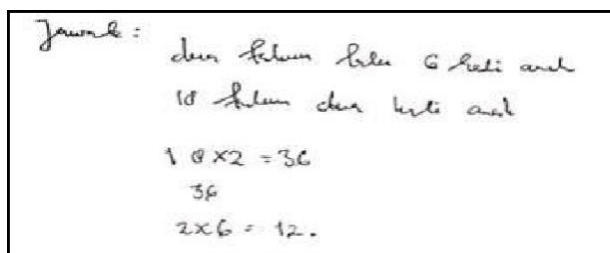 Jawab :
dua tahun lalu 6 kali anak
18 tahun dua kali anak
18 x 2 = 36
36
2 x 6 = 12.